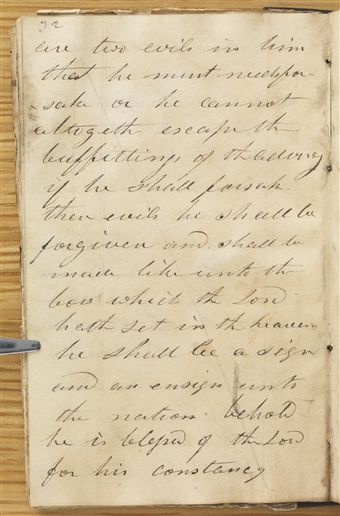 32
are two evils in him
that he must needs for
sake or he cannot
altogeth escape th
buffittings of th advers
if he shall forsak
thes evils he shall be
forgiven and shall be
made like unto th
bow which th Lord
hath set in th heavens
he shall be a sign
and an ensign unto
the nation behold
he is blessed of the Lord
for his constancy